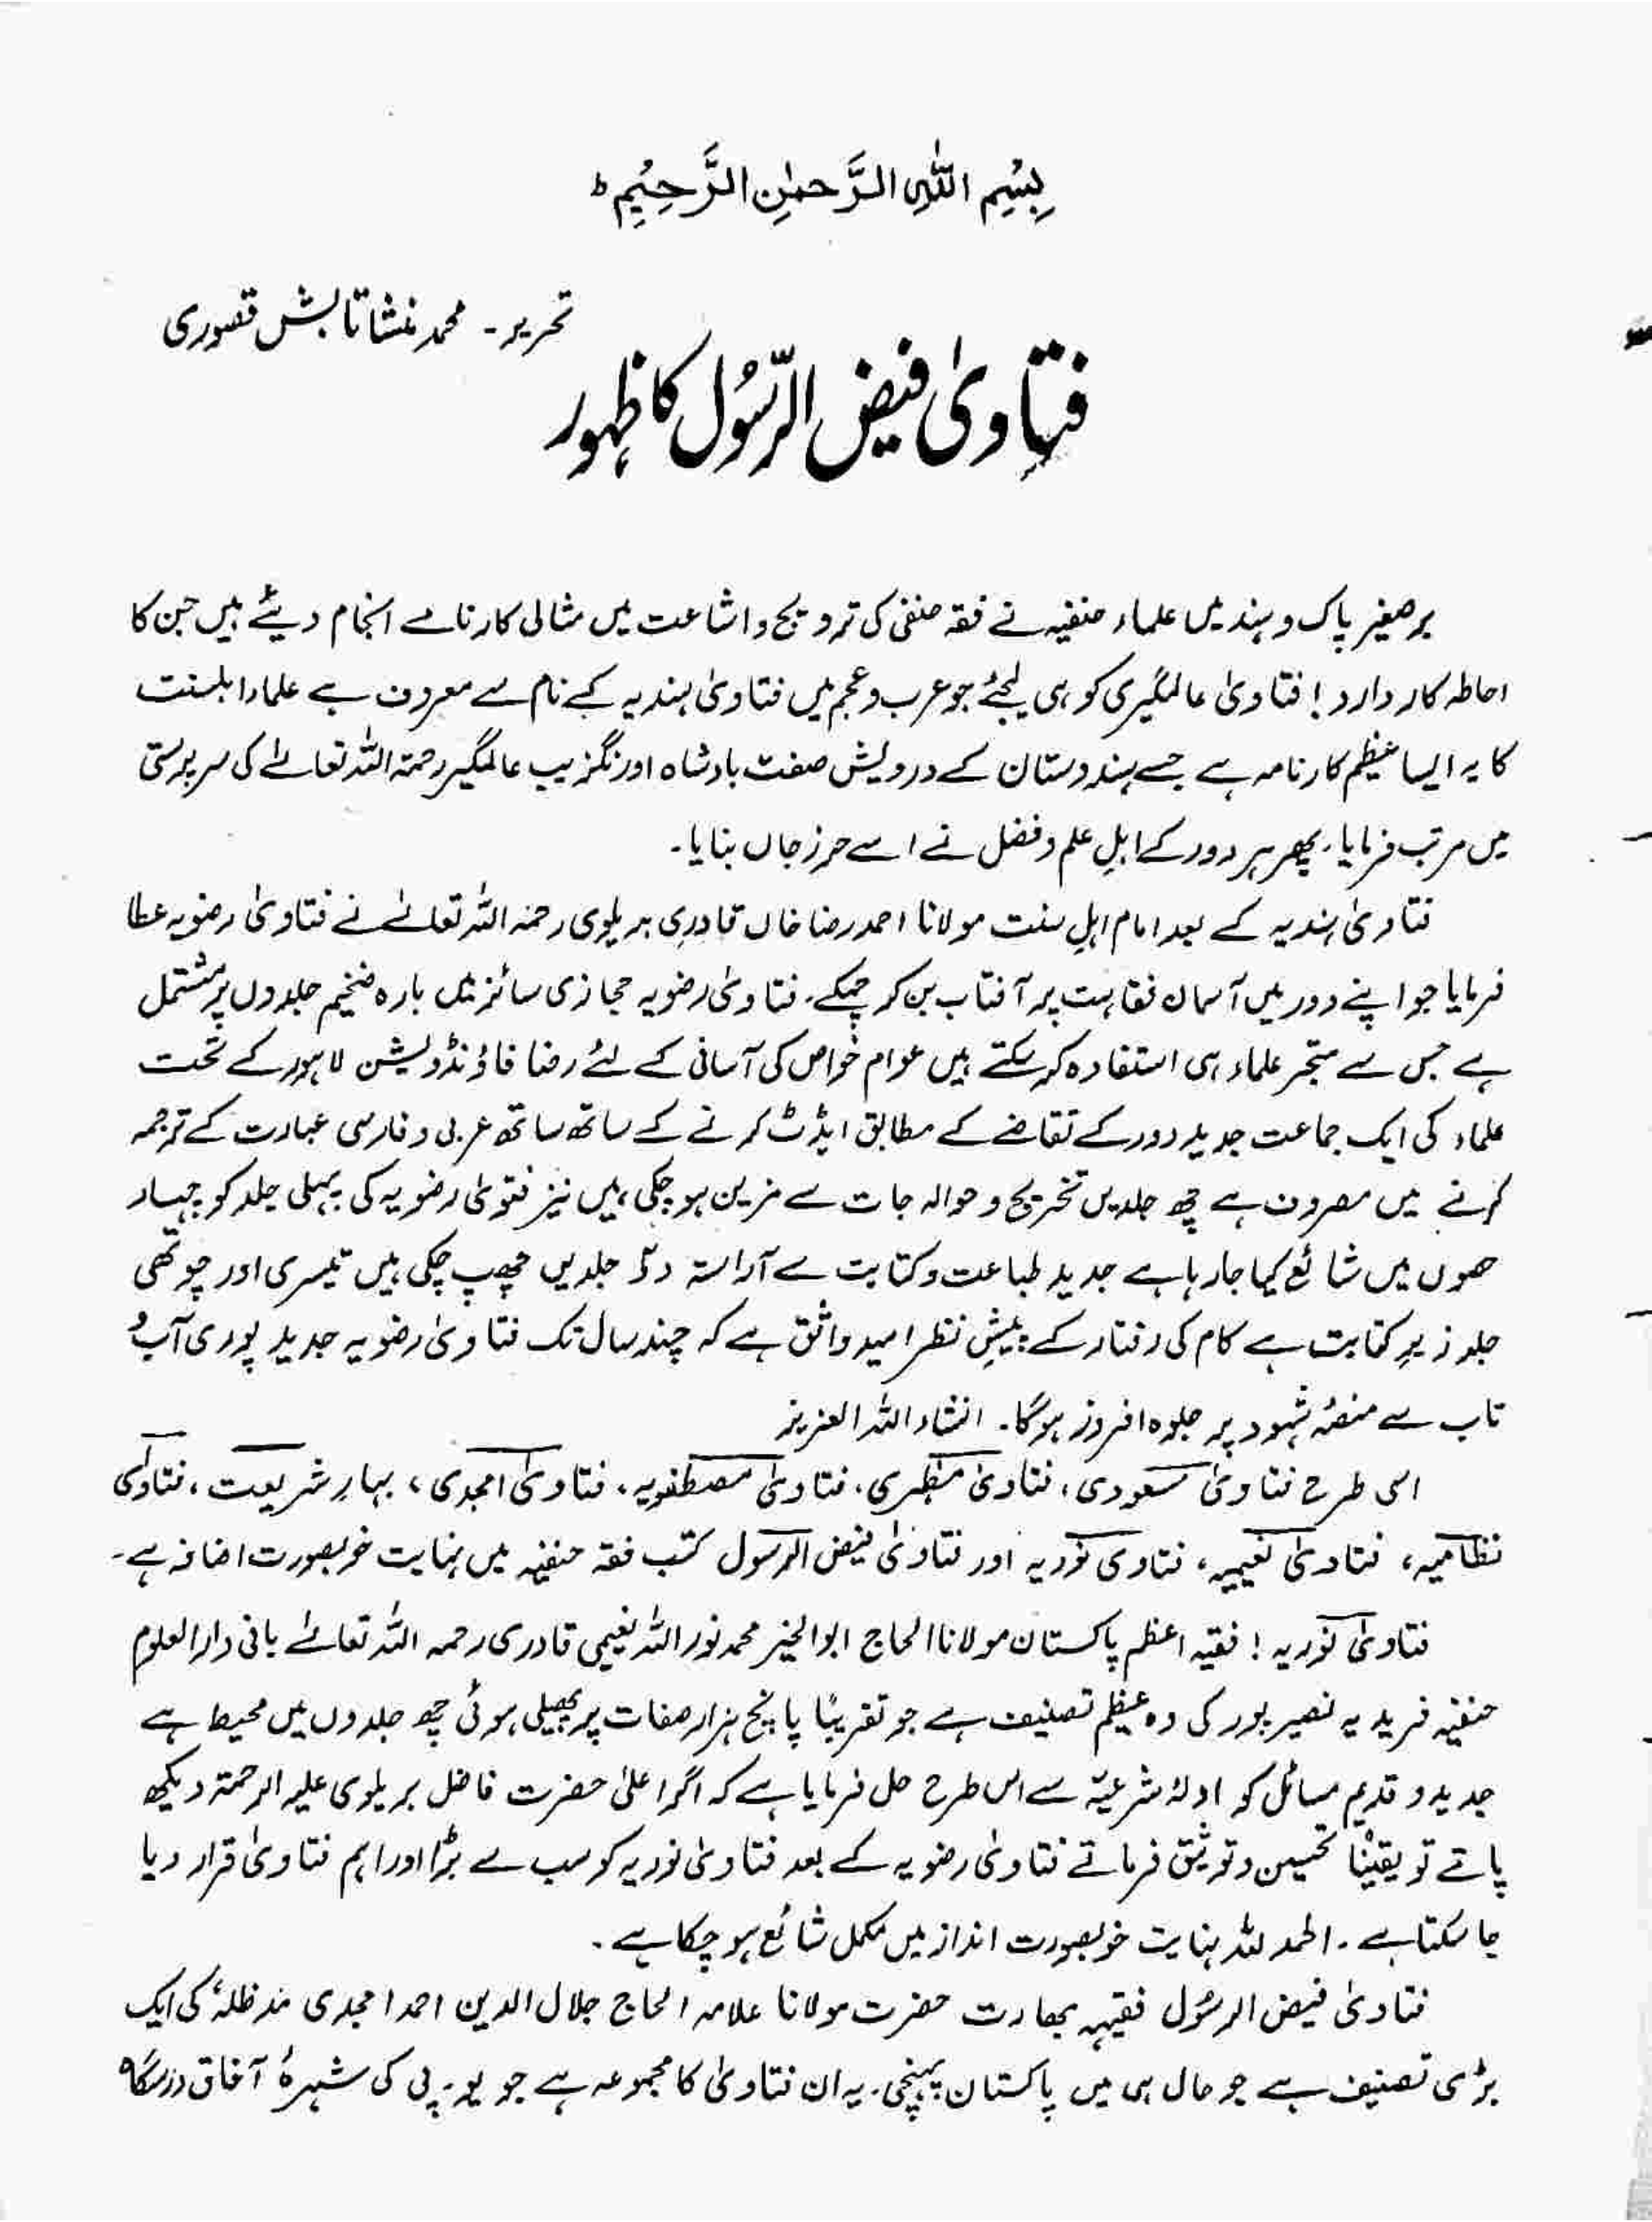 بِسْمِ اللّٰهِ الرَّحمٰنِ الرَّحِيْمِ ط
تحریر۔ محمد منشا تابش قصوری
فتاویٰ فیض الرّسُول کا ظہور
برصغیر پاک و ہند میں علماء حنفیہ نے فقہ حنفی کی ترویج و اشاعت میں مثالی کارنامے انجام دیئے ہیں جن کا
احاطہ کار دارد! فتاویٰ عالمگیری کو ہی لیجئے جو عرب و عجم میں فتاویٰ ہندیہ کے نام سے معروف ہے علماء اہلسنت
کا یہ ایسا عظیم کارنامہ ہے جسے ہندوستان کے درویش صفت بادشاہ اورنگزیب عالمگیر رحمۃ اللہ تعالےٰ کی سرپرستی
میں مرتب فرمایا۔ پھر ہر دور کے اہلِ علم و فضل نے اسے حرزِ جاں بنایا۔
فتاویٰ ہندیہ کے بعد امام اہلِ سنت مولانا احمد رضا خاں قادری بریلوی رحمہ اللہ تعالےٰ نے فتاویٰ رضویہ عطا
فرمایا جو اپنے دور میں آسمان فقاہت پر آفتاب بن کر چمکے۔ فتاویٰ رضویہ حجازی سائز میں بارہ ضخیم جلدوں پر مشتمل
ہے جس سے متبحر علماء ہی استفادہ کر سکتے ہیں عوام خواص کی آسانی کے لئے رضا فاؤنڈولیشن لاہور کے تحت
علماء کی ایک جماعت جدید دور کے تقاضے کے مطابق ایڈٹ کرنے کے ساتھ ساتھ عربی و فارسی عبارت کے ترجمہ
کرنے میں مصروف ہے چھ جلدیں تخریج و حوالہ جات سے مزین ہو چکی ہیں نیز فتویٰ رضویہ کی پہلی جلد کو چہار
حصوں میں شائع کیا جا رہا ہے جدید طباعت و کتابت سے آراستہ دو جلدیں چھپ چکی ہیں تیسری اور چوتھی
جلد زیرِ کتابت ہے کام کی رفتار کے پیشِ نظر امید واثق ہے کہ چند سال تک فتاویٰ رضویہ جدید پوری آب و
تاب سے منصۂ شہود پر جلوہ افروز ہوگا۔ انشاء اللہ العزیز
اسی طرح فتاویٰ مسعودی، فتاویٰ مظہری، فتاویٰ مصطفویہ، فتاویٰ امجدی، بہارِ شریعت، فتاویٰ
نظامیہ، فتاویٰ نعیمیہ، فتاویٰ نوریہ اور فتاویٰ فیض الرسول کتب فقہ حنفیہ میں نہایت خوبصورت اضافہ ہے۔
فتاویٰ نوریہ! فقیہ اعظم پاکستان مولانا الحاج ابو الخیر محمد نور اللہ نعیمی قادری رحمہ اللہ تعالےٰ بانی دارالعلوم
حنفیہ فریدیہ بصیرپور کی وہ عظیم تصنیف ہے جو تقریبًا پانچ ہزار صفات پر پھیلی ہوئی چھ جلدوں میں محیط ہے
جدید و قدیم مسائل کو ادلۂ شرعیّہ سے اس طرح حل فرمایا ہے کہ اگر اعلیٰ حضرت فاضل بریلوی علیہ الرحمۃ دیکھ
پاتے تو یقینًا تحسین و توثیق فرماتے فتاویٰ رضویہ کے بعد فتاویٰ نوریہ کو سب سے بڑا اور اہم فتاویٰ قرار دیا
جا سکتا ہے۔ الحمد للہ نہایت خوبصورت انداز میں مکمل شائع ہو چکا ہے۔
فتاویٰ فیض الرسُول فقیہہ بھارت حضرت مولانا علامہ الحاج جلال الدین احمد امجدی مدظلہٗ کی ایک
بڑی تصنیف ہے جو حال ہی میں پاکستان پہنچی۔ یہ ان فتاویٰ کا مجموعہ ہے جو یو۔پی کی شہرۂ آفاق درسگاہ